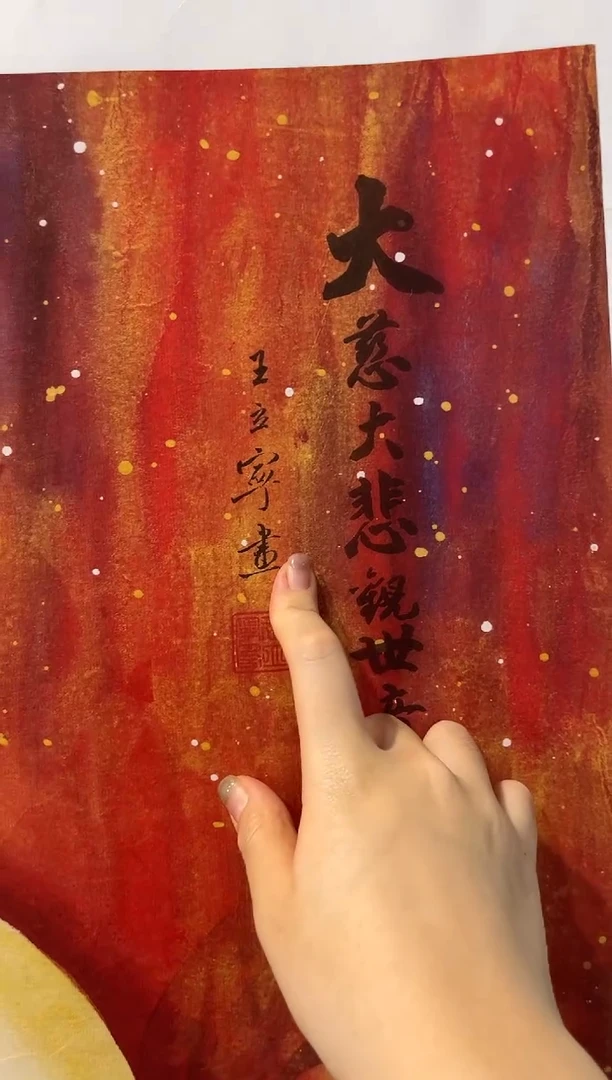 大慈大悲觀世音
王立寧畫